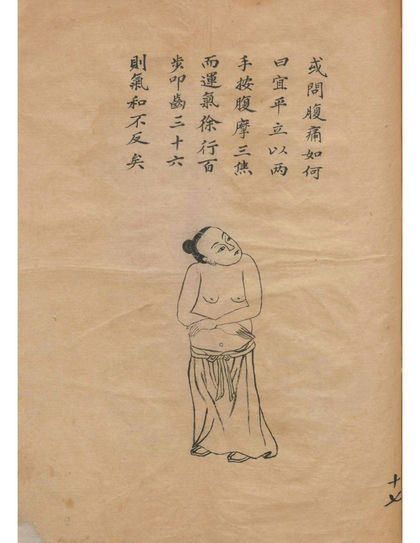 或問腹痛如何
曰宜平立以兩
手按腹摩三焦
而運氣徐行百
步叩齒三十六
則氣和不反矣
十七